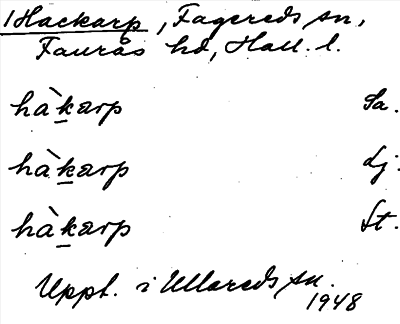 1 Hackarp, Fagereds sn,
Faurås hd, Hall. l.
hàkarp Sa.
hàkarp Lj.
hàkarp St.
Uppt. i Ullareds sn.
1948